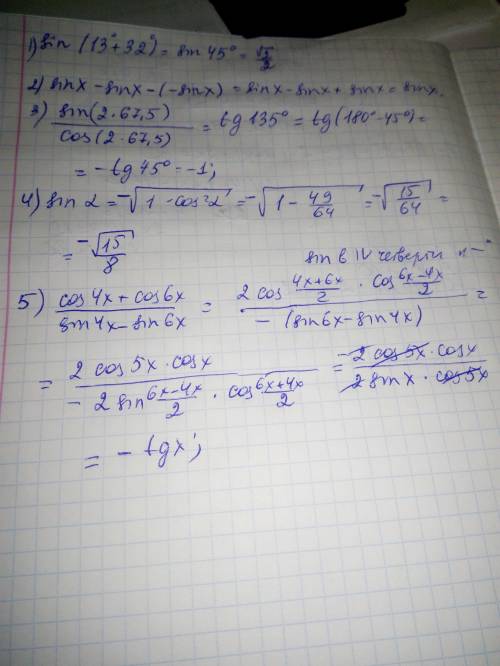 1) sin (13° + 32°) = sin 45° = √2/2
2) sin x - sin x - (- sin x) = sin x - sin x + sin x = sin x.
3) sin(2·67,5)/cos(2·67,5) = tg 135° = tg(180° - 45°) =
= - tg 45° = -1;
4) sin 2 = -√(1 - cos²2) = -√(1 - 49/64) = -√(15/64) =
= -√15/8
sin в IV четверти "-"
5) (cos 4x + cos 6x)/(sin 4x - sin 6x) = (2 cos (4x+6x)/2 · cos (6x-4x)/2)/(- (sin 6x - sin 4x)) =
= (2 cos 5x · cos x)/(- 2 sin (6x-4x)/2 · cos (6x+4x)/2) = (-2 cos 5x · cos x)/(2 sin x · cos 5x)
= - tg x;